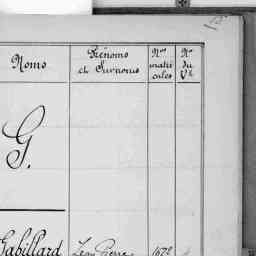 Noms
Prénoms
et Surnoms
Nos
matri
cules
No
du
Vt
G.
Gabillard Jean Pierre